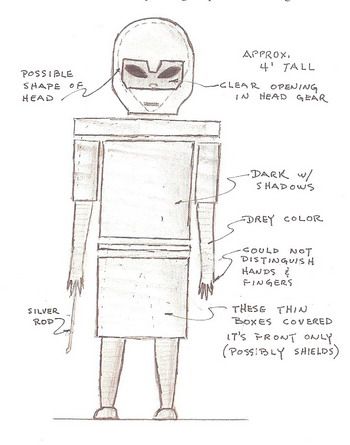 APPROX.
4' TALL
POSSIBLE
SHAPE OF
HEAD
CLEAR OPENING
IN HEAD GEAR
DARK W/
SHADOWS
DREY COLOR
COULD NOT
DISTINGUISH
HANDS &
FINGERS
SILVER
ROD
THESE THIN
BOXES COVERED
IT'S FRONT ONLY
(POSSIBLY SHIELDS)